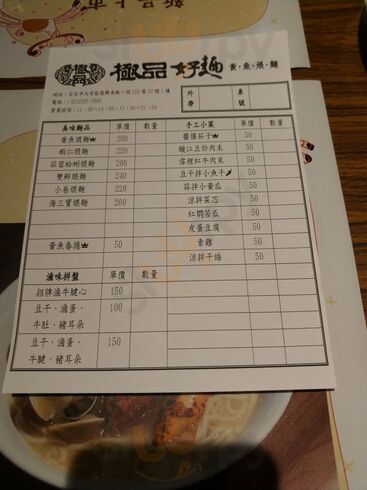 極品 好麵 黃·魚·煨·麵
外帶
桌號
營業時間：11:30~14:00；17:00~21:00
美味麵品 單價 數量 手工小菜 單價 數量
黃魚煨麵 200 醬爆茄子 50
蝦仁煨麵 220 酸江豆炒肉末 50
蒜蓉蛤蜊煨麵 200 雪裡紅牛肉末 50
雙鮮煨麵 240 豆干拌小魚干 50
小卷煨麵 220 蒜拌小黃瓜 50
海三寶煨麵 260 涼拌菜芯 50
紅燜苦瓜 50
皮蛋豆腐 50
黃魚春捲 50 素雞 50
涼拌干絲 50
滷味拼盤 單價 數量
招牌滷牛腱心 150
豆干、滷蛋、 100
牛肚、豬耳朵
豆干、滷蛋、 150
牛腱、豬耳朵